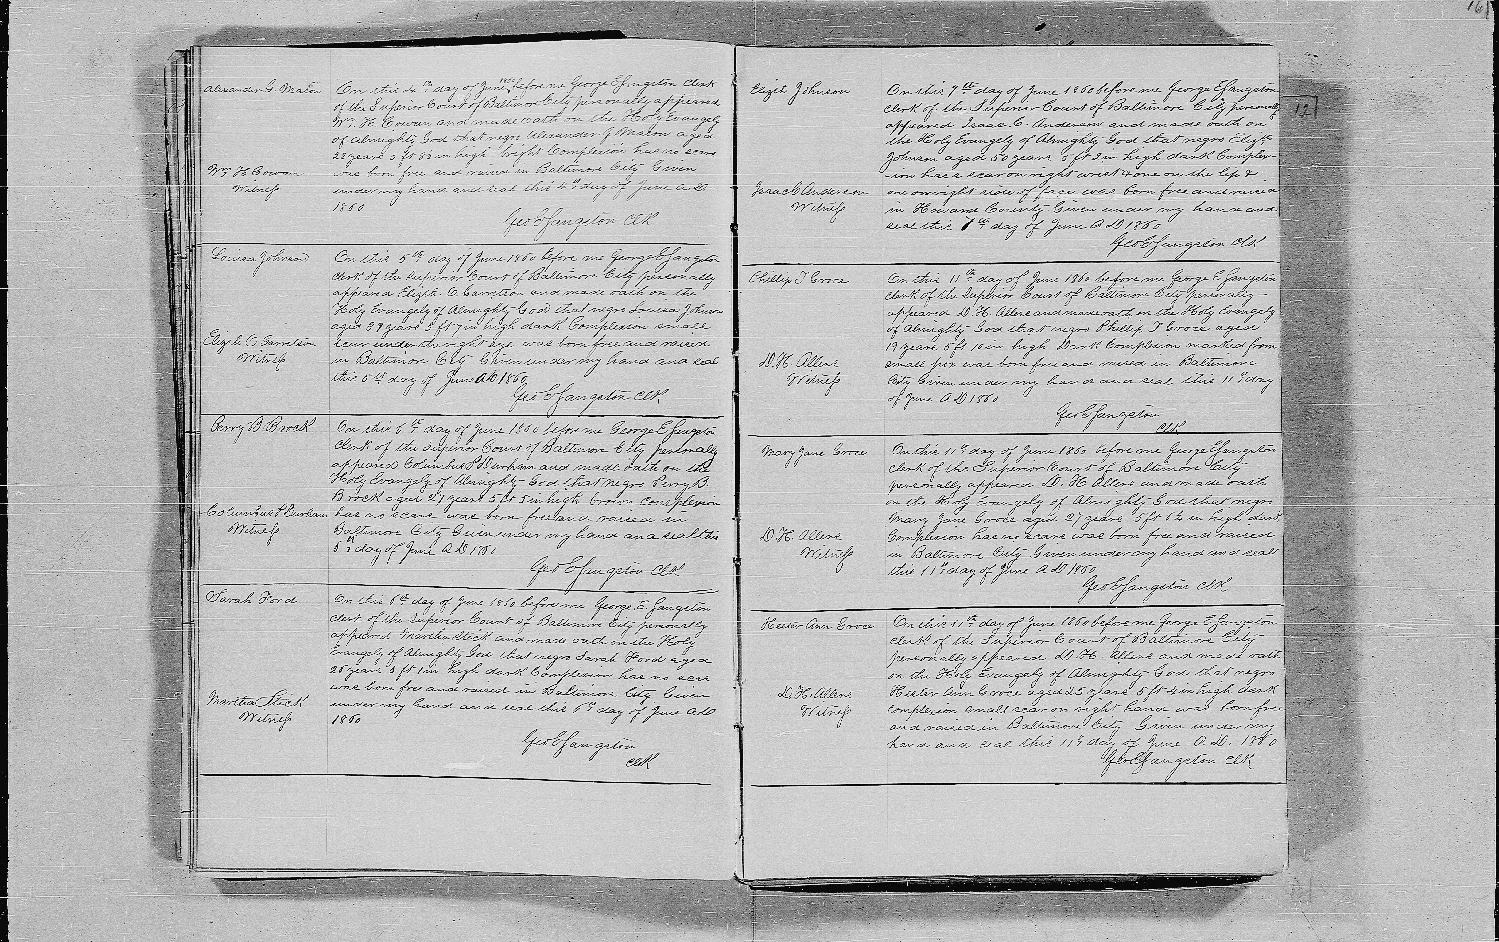 Alexander G. Mason
On this 4th day of June 1860 before me George E Sangston Clerk
of the Superior Court of Baltimore City personally appeared
Wm H. Cowan and made oath on the Holy Evangely
of Almighty God that negro Alexander G Mason aged
22 years 5 ft 8½ in high bright Complexion has no scars
was born free and raised in Baltimore City Given
under my hand and seal this 4th day of June A D
1860
Wm H Cowan
Witness
Geo E Sangston Clk
Louisa Johnson
On this 5th day of June 1860 before me George E Sangston
Clerk of the Superior Court of Baltimore City personally
appeared Elizth C. Garretson and made oath on the
Holy Evangely of Almighty God that negro Louisa Johnson
aged 29 years 5 ft 7 in high dark Complexion small
scar under the right eye was born free and raised
in Baltimore City Given under my hand and seal
this 5th day of June A D 1860
Elizth C. Garretson
Witness
Geo E Sangston Clk
Perry B Brock
On this 5th day of June 1860 before me George E Sangston
Clerk of the Superior Court of Baltimore City personally
appeared Columbus P Durham and made oath on the
Holy Evangely of Almighty God that negro Perry B.
Brock aged 21 years 5 ft 5 in high brown complexion
has no scars was born free and raised in
Baltimore City Given under my hand and seal this
5th day of June A D 1860
Columbus P Durham
Witness
Geo E Sangston Clk
Sarah Ford
On this 6th day of June 1860 before me George E. Sangston
Clerk of the Superior Court of Baltimore City personally
appeared Martha Stick and made oath on the Holy
Evangely of Almighty God that negro Sarah Ford aged
25 years 5 ft 1 in high dark Complexion has no scar
was born free and raised in Baltimore City Given
under my hand and seal this 6th day of June A D
1860
Martha Stick
Witness
Geo E Sangston
Clk
12
Elizth Johnson
On this 7th day of June 1860 before me George E Sangston
Clerk of the Superior Court of Baltimore City personally
appeared Isaac C. Anderson and made oath on
the Holy Evangely of Almighty God that negro Elizth
Johnson aged 50 years 5 ft 2 in high dark Complex-
ion has a scar on right wrist & one on the lip &
one on right side of face was born free and raised
in Howard County Given under my hand and
seal this 7th day of June A D 1860
Isaac C Anderson
Witness
Geo E Sangston Clk
Phillip T Groce
On this 11th day of June 1860 before me George E Sangston
Clerk of the Superior Court of Baltimore City personally
appeared D. H Allene and made oath on the Holy Evangely
of Almighty God that negro Phillip T Groce aged
19 years 5 ft 10 in high Dark Complexion marked from
small pox was born free and raised in Baltimore
City Given under my hand and seal this 11th day
of June A D 1860
D. H. Allene
Witness
Geo E Sangston
Clk
Mary Jane Groce
On this 11th day of June 1860 before me George E Sangston
Clerk of the Superior Court of Baltimore City
personally appeared D. H Allene and made oath
on the Holy Evangely of Almighty God that negro
Mary Jane Groce aged 27 years 5 ft 1½ in high dark
Complexion has no scars was born free and raised
in Baltimore City Given under my hand and seal
this 11th day of June A D 1860
D. H. Allene
Witness
Geo E Sangston Clk
Hester Ann Groce
On this 11th day of June 1860 before me George E Sangston
Clerk of the Superior Court of Baltimore City
personally appeared D. H Allene and made oath
on the Holy Evangely of Almighty God that negro
Hester Ann Groce aged 25 years 5 ft 4 in high dark
complexion small scar on right hand was born free
and raised in Baltimore City Given under my
hand and seal this 11th day of June A. D. 1860
D. H. Allene
Witness
Geo E Sangston Clk